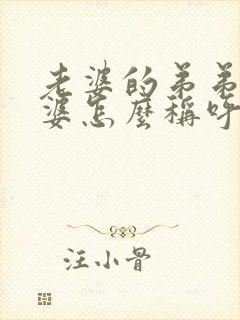 老婆的弟弟
婆怎麼稱呼
汪小骨